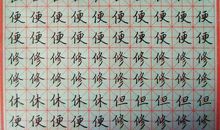 便便便便便便便便便便
便便便便便便便便便便
修修修修修修修修修修
修修修修修修修修修修
休休休休休休但但但但
便便便便便修修修修修